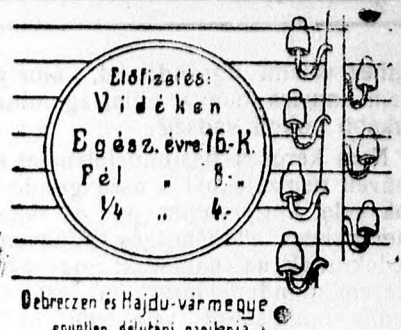 Előfizetés:
Vidéken
Egész. évre 16.-K.
Fél „ 8.- „
1/4 „ 4.-
Debreczen és Hajdu-vármegye
egyetlen délutáni napilapja